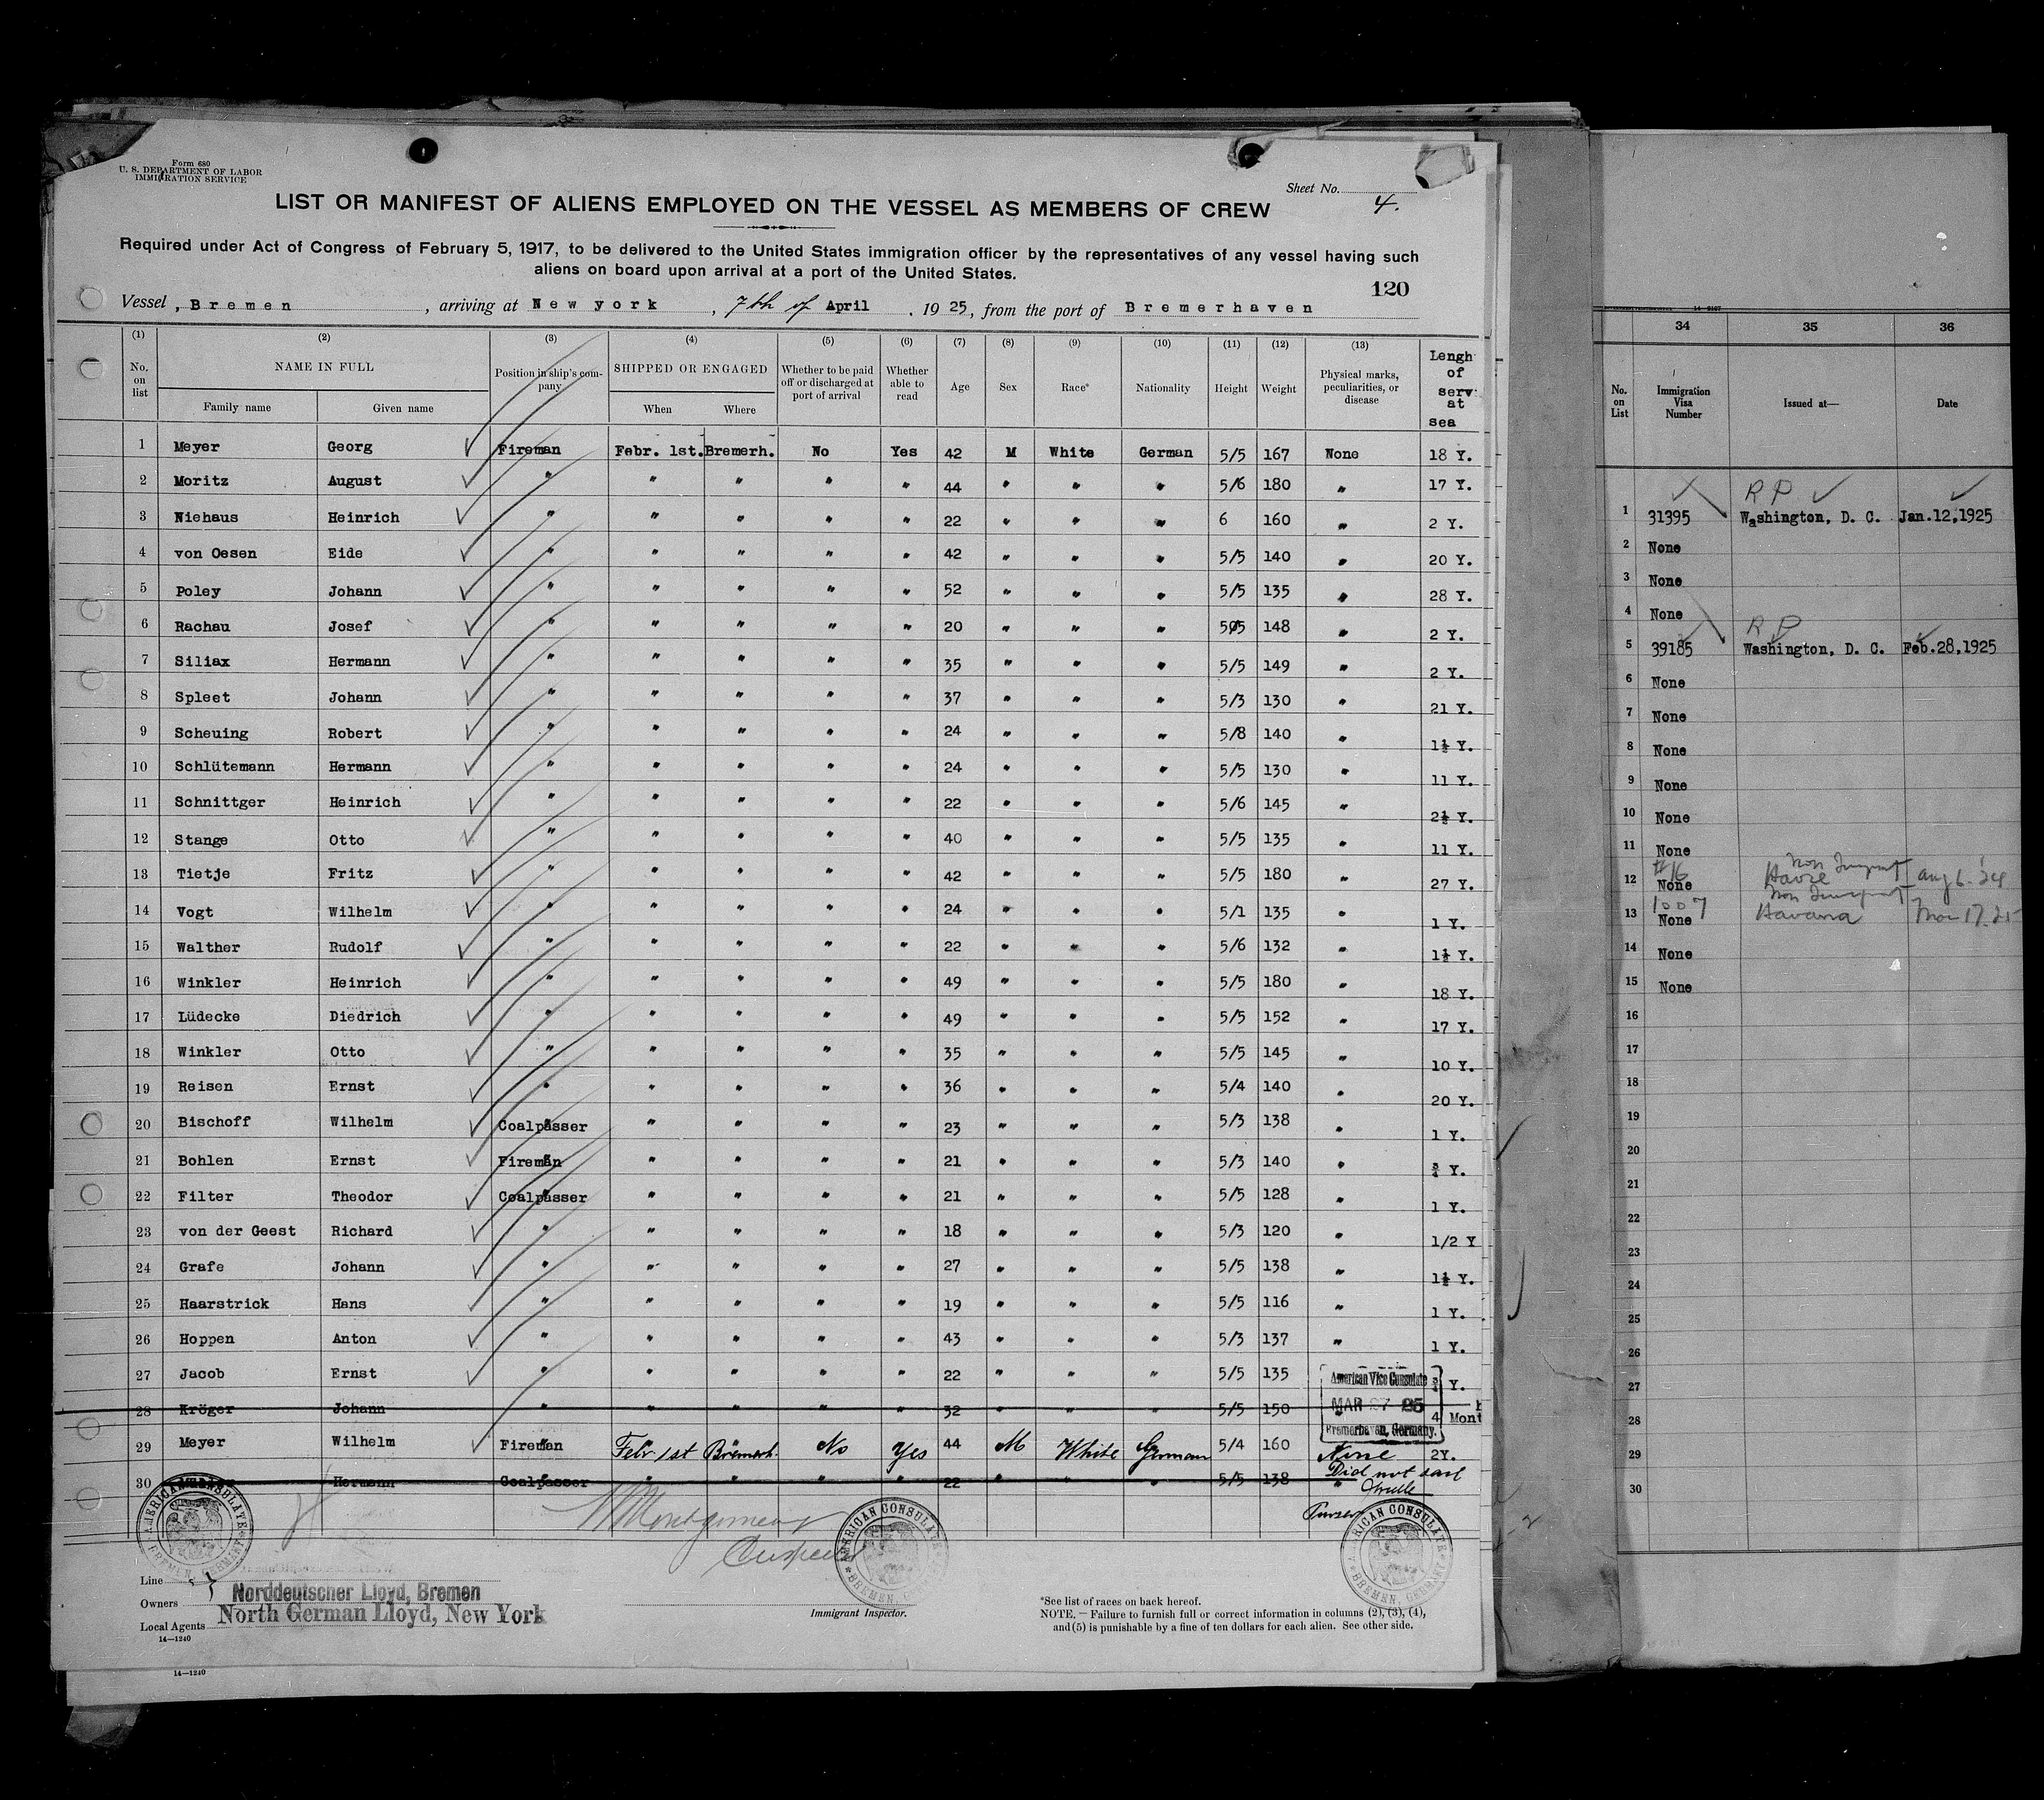 Form 680
U. S. DEPARTMENT OF LABOR
IMMIGRATION SERVICE
Sheet No. 4.
LIST OR MANIFEST OF ALIENS EMPLOYED ON THE VESSEL AS MEMBERS OF CREW
Required under Act of Congress of February 5, 1917, to be delivered to the United States immigration officer by the representatives of any vessel having such
aliens on board upon arrival at a port of the United States.
120
Vessel, Bremen, arriving at New york, 7th of April, 1925, from the port of Bremerhaven
(1) (2) (3) (4) (5) (6) (7) (8) (9) (10) (11) (12) (13)
No. on list NAME IN FULL Position in ship's company SHIPPED OR ENGAGED Whether to be paid off or discharged at port of arrival Whether able to read Age Sex Race* Nationality Height Weight Physical marks, peculiarities, or disease Lengh of serv: at sea
Family name Given name When Where
1 Meyer Georg Fireman Febr. 1st. Bremerh. No Yes 42 M White German 5/5 167 None 18 Y.
2 Moritz August " " " " " 44 " " " 5/6 180 " 17 Y.
3 Niehaus Heinrich " " " " " 22 " " " 6 160 " 2 Y.
4 von Oesen Eide " " " " " 42 " " " 5/5 140 " 20 Y.
5 Poley Johann " " " " " 52 " " " 5/5 135 " 28 Y.
6 Rachau Josef " " " " " 20 " " " 5/5 148 " 2 Y.
7 Siliax Hermann " " " " " 35 " " " 5/5 149 " 2 Y.
8 Spleet Johann " " " " " 37 " " " 5/3 130 " 21 Y.
9 Scheuing Robert " " " " " 24 " " " 5/8 140 " 1½ Y.
10 Schlütemann Hermann " " " " " 24 " " " 5/5 130 " 11 Y.
11 Schnittger Heinrich " " " " " 22 " " " 5/6 145 " 2½ Y.
12 Stange Otto " " " " " 40 " " " 5/5 135 " 11 Y.
13 Tietje Fritz " " " " " 42 " " " 5/5 180 " 27 Y.
14 Vogt Wilhelm " " " " " 24 " " " 5/1 135 " 1 Y.
15 Walther Rudolf " " " " " 22 " " " 5/6 132 " 1½ Y.
16 Winkler Heinrich " " " " " 49 " " " 5/5 180 " 18 Y.
17 Lüdecke Diedrich " " " " " 49 " " " 5/5 152 " 17 Y.
18 Winkler Otto " " " " " 35 " " " 5/5 145 " 10 Y.
19 Reisen Ernst " " " " " 36 " " " 5/4 140 " 20 Y.
20 Bischoff Wilhelm Coalpasser " " " " 23 " " " 5/3 138 " 1 Y.
21 Bohlen Ernst Fireman " " " " 21 " " " 5/3 140 " ¾ Y.
22 Filter Theodor Coalpasser " " " " 21 " " " 5/5 128 " 1 Y.
23 von der Geest Richard " " " " " 18 " " " 5/3 120 " 1/2 Y
24 Grafe Johann " " " " " 27 " " " 5/5 138 " 1½ Y.
25 Haarstrick Hans " " " " " 19 " " " 5/5 116 " 1 Y.
26 Hoppen Anton " " " " " 43 " " " 5/3 137 " 1 Y.
27 Jacob Ernst " " " " " 22 " " " 5/5 135 Y.
28 Kröger Johann " " " " " 32 " " " 5/5 150 " 4 Mont
American Vice Consulate
MAR 27 25
Bremerhaven, Germany.
29 Meyer Wilhelm Fireman Febr 1st Bremerh. No Yes 44 M White German 5/4 160 None 2Y.
30 Hermann Coalpasser " " " " 22 " " " 5/5 138 "
Did not sail
Purser
Montgomery
AMERICAN CONSULATE
BREMEN, GERMANY
AMERICAN CONSULATE
BREMEN,
AMERICAN CONSULATE
BREMEN, GERMANY
Line
Owners Norddeutscher Lloyd, Bremen
Local Agents North German Lloyd, New York
14—1240
Immigrant Inspector.
*See list of races on back hereof.
NOTE. — Failure to furnish full or correct information in columns (2), (3), (4),
and (5) is punishable by a fine of ten dollars for each alien. See other side.
14—1240
14—2107
34 35 36
No. on List Immigration Visa Number Issued at— Date
RP
1 31395 Washington, D. C. Jan.12,1925
2 None
3 None
4 None
RP
5 39185 Washington, D. C. Feb.28,1925
6 None
7 None
8 None
9 None
10 None
11 None
#16 Non
12 None Havre Aug 6. 24
1007 Non
13 None Havana
14 None
15 None
16
17
18
19
20
21
22
23
24
25
26
27
28
29
30